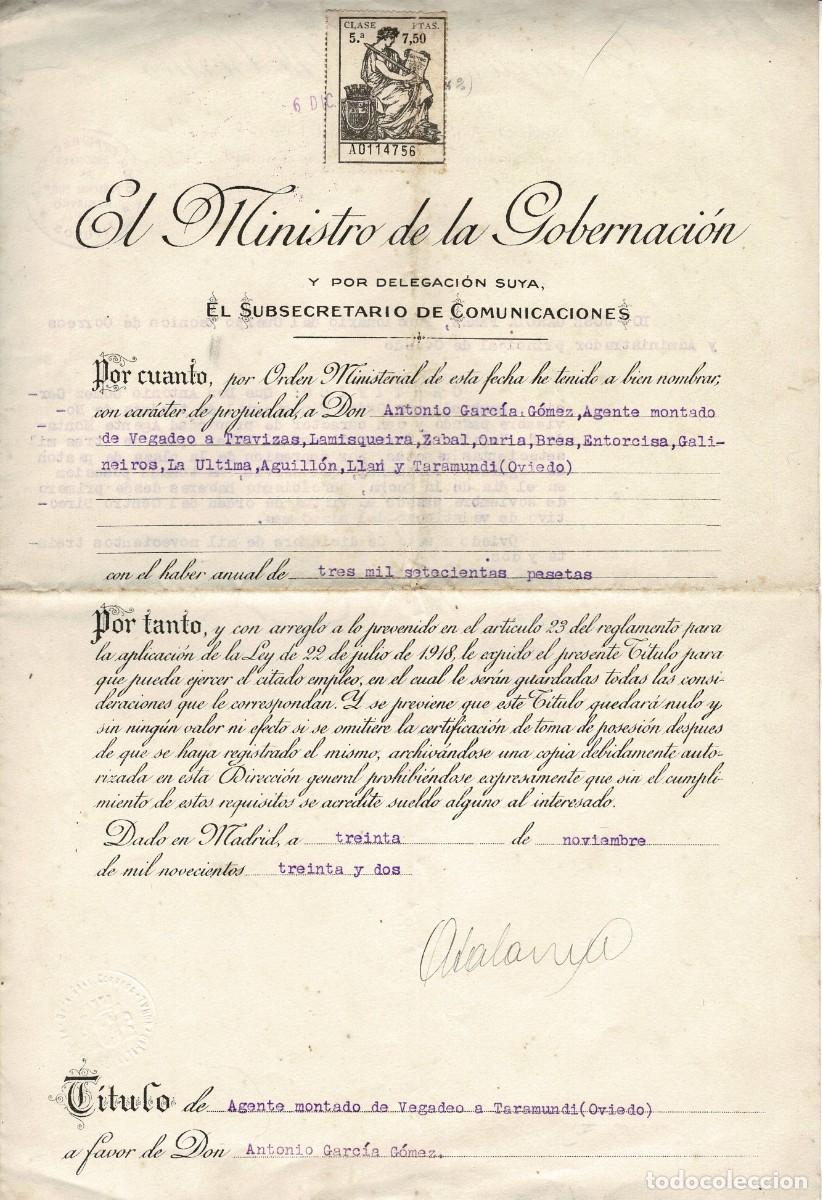 CLASE PTAS.
5.ª 7,50
6 DIC
A0114756
El Ministro de la Gobernación
Y POR DELEGACIÓN SUYA,
EL SUBSECRETARIO DE COMUNICACIONES
Por cuanto, por Orden Ministerial de esta fecha he tenido a bien nombrar,
con carácter de propiedad, a Don Antonio García Gómez,Agente montado
de Vegadeo a Travizas,Lamisqueira,Zabal,Ouria,Bres,Entorcisa,Gali-
neiros,La Ultima,Aguillón,Llan y Taramundi(Oviedo)
con el haber anual de tres mil setecientas pesetas
Por tanto, y con arreglo a lo prevenido en el artículo 23 del reglamento para
la aplicación de la Ley de 22 de julio de 1918, le expido el presente Título para
que pueda ejercer el citado empleo, en el cual le serán guardadas todas las consi-
deraciones que le correspondan. Y se previene que este Título quedará nulo y
sin ningún valor ni efecto si se omitiere la certificación de toma de posesión despues
de que se haya registrado el mismo, archivándose una copia debidamente auto-
rizada en esta Dirección general prohibiéndose expresamente que sin el cumpli-
miento de estos requisitos se acredite sueldo alguno al interesado.
Dado en Madrid, a treinta de noviembre
de mil novecientos treinta y dos
Título de Agente montado de Vegadeo a Taramundi(Oviedo)
a favor de Don Antonio García Gómez.
todocoleccion